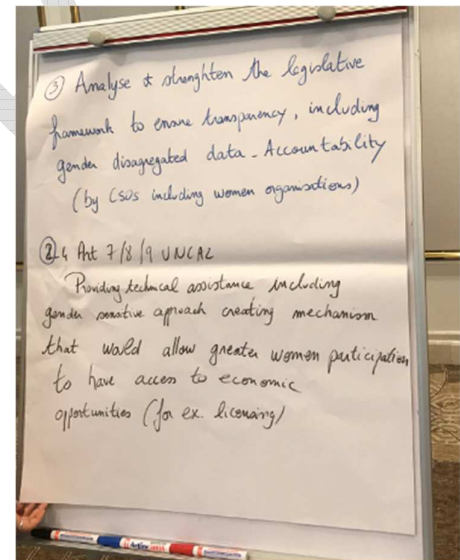 ③ Analyse & strenghten the legislative
framework to ensure transparency, including
gender disagregated data - Accountability
(by CSOs including women organisations)
② 4 Art 7/8/9 UNCAC
Providing technical assistance including
gender sensitive approach creating mechanism
that would allow greater women participation
to have access to economic
opportunities (for ex. licensing)